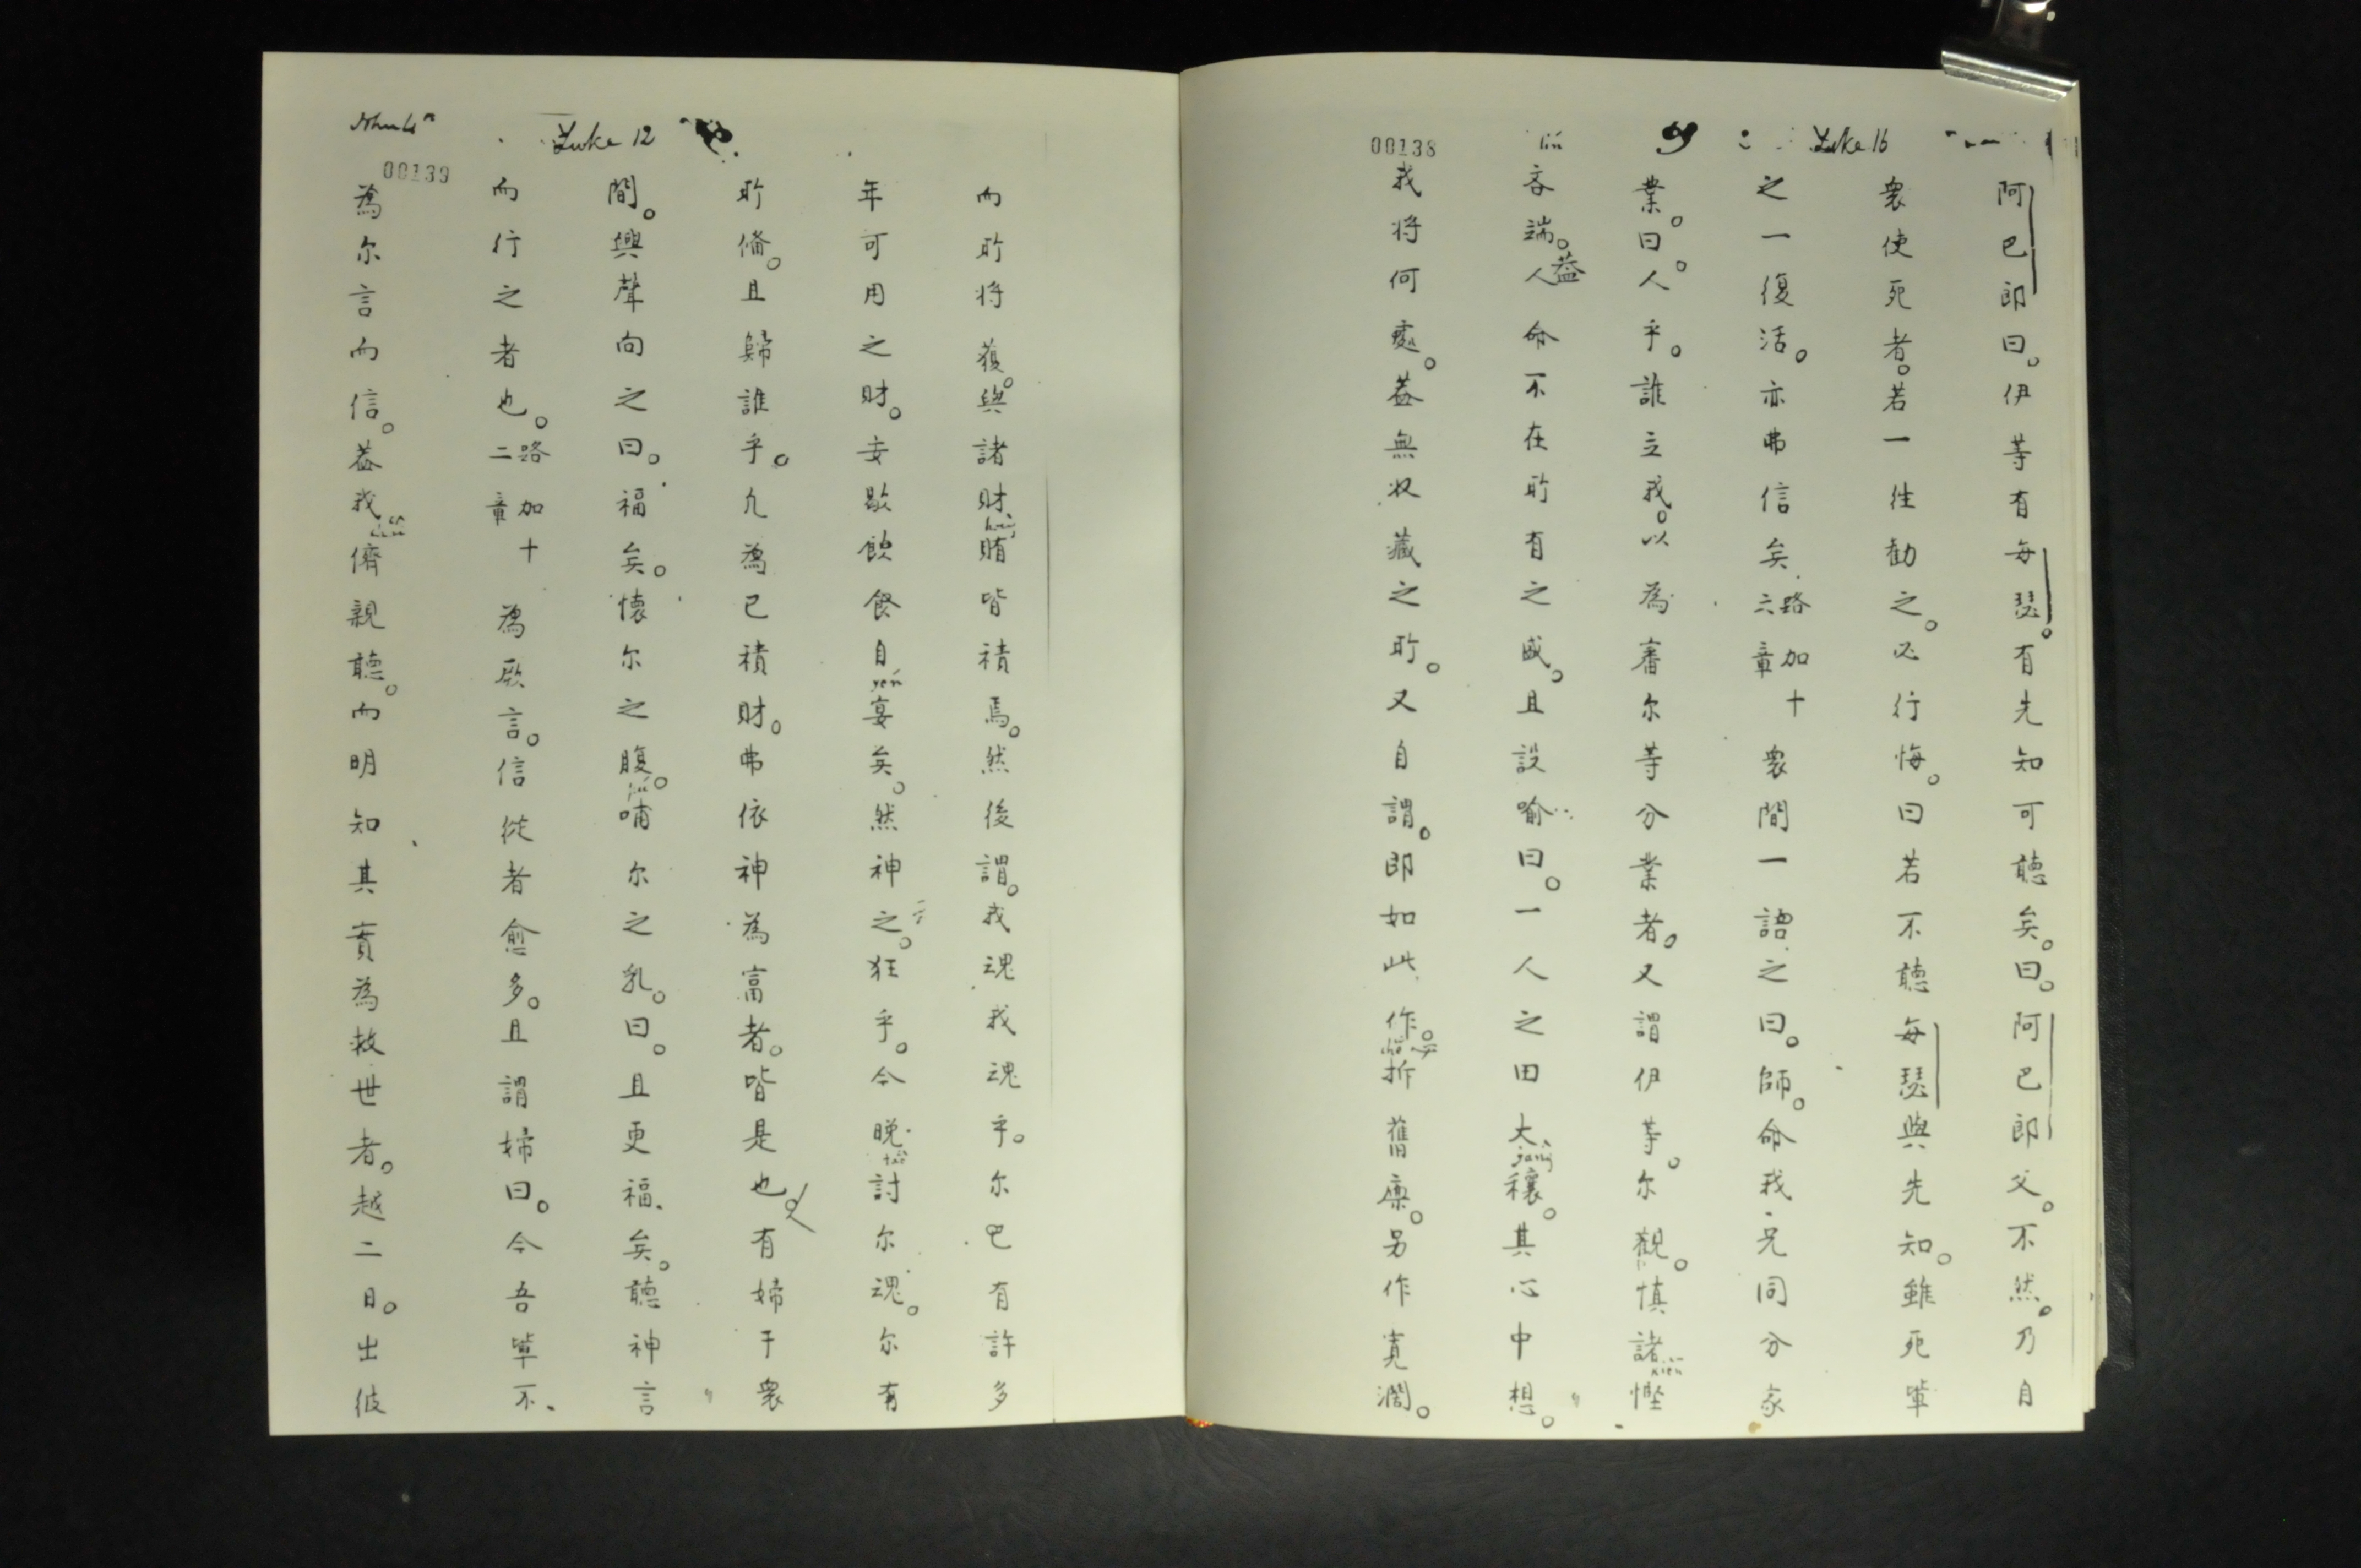 Luke 16
阿巴郎曰。伊等有每瑟。有先知可聽矣。曰。阿巴郎父。不然。乃自
衆使死者。若一往勸之。必行悔。曰若不聽每瑟與先知。雖死輩
之一復活。亦弗信矣路加十六章衆間一語之曰。師。命我兄同分家
業。曰。人乎。誰立我。以為審尔等分業者。又謂伊等。尔觀。慎諸慳
lín
吝端。蓋人命不在所有之盛。且設喻曰。一人之田大穰。其心中想。
我将何處。蓋無收藏之所。又自謂。即如此作。拆舊廩。另作寬濶。
00138
而所将獲。與諸財賄皆積焉。然後謂。我魂我魂乎。尔已有許多
年可用之財。安歇飲食自宴矣。然神之。狂乎。今晚討尔魂。尔有
所備。且歸誰乎。凡為已積財。弗依神為富者。皆是也又有婦于衆
Luke 12
間。興聲向之曰。福矣。懷尔之腹。哺尔之乳。曰。且更福矣。聽神言
而行之者也。路加十二章為厥言。信從者愈多。且謂婦曰。今吾輩不
為尔言而信。蓋我儕親聽。而明知其實為救世者。越二日。出彼
John 4
00139